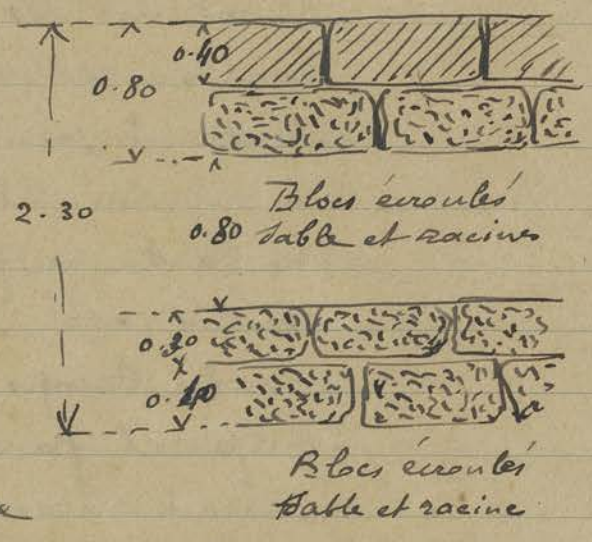 0.40
0.80
2.30
Blocs écroulés
0.80 Sable et racines
0.30
0.40
Blocs écroulés
Sable et racine